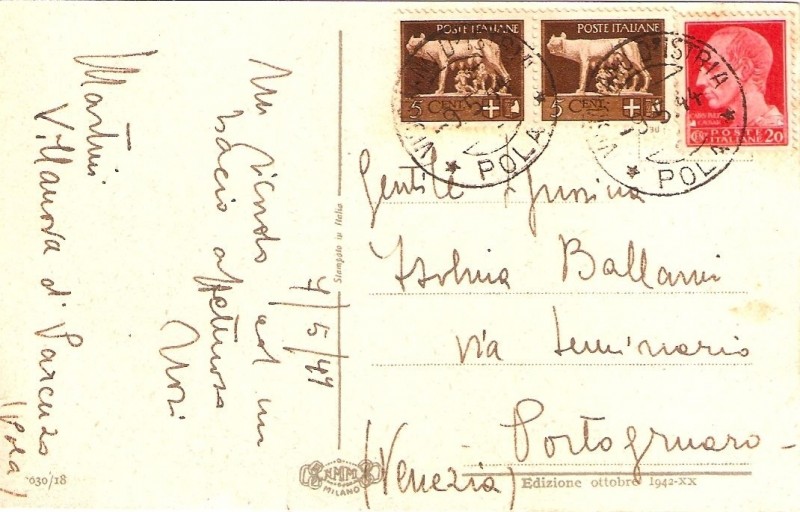 POSTE ITALIANE
5 CENT.
POSTE ITALIANE
5 CENT.
POSTE ITALIANE
20
D'ISTRIA
POLA
D'ISTRIA
POLA
Martini
Villanova di Parenzo
(Pola)
un
bacio affettuoso
4/5/44
Stampato in Italia
Gentile
Ballarin
via Seminario
Portogruaro
(Venezia)
NMM
MILANO
030/18
Edizione ottobre 1942-XX